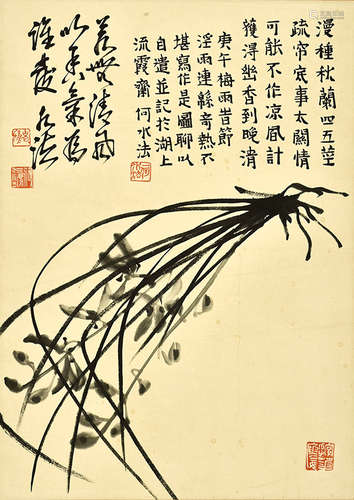 漫種秋蘭四五莖
疏帘底事太關情
可能不作涼風計
獲得幽香到晚清
庚午梅雨昔節
淫雨連緜奇熱不
堪寫作是圖聊以
自遣並記於湖上
流霞齋何水法
若無清風
吹香氣為
誰發 水法